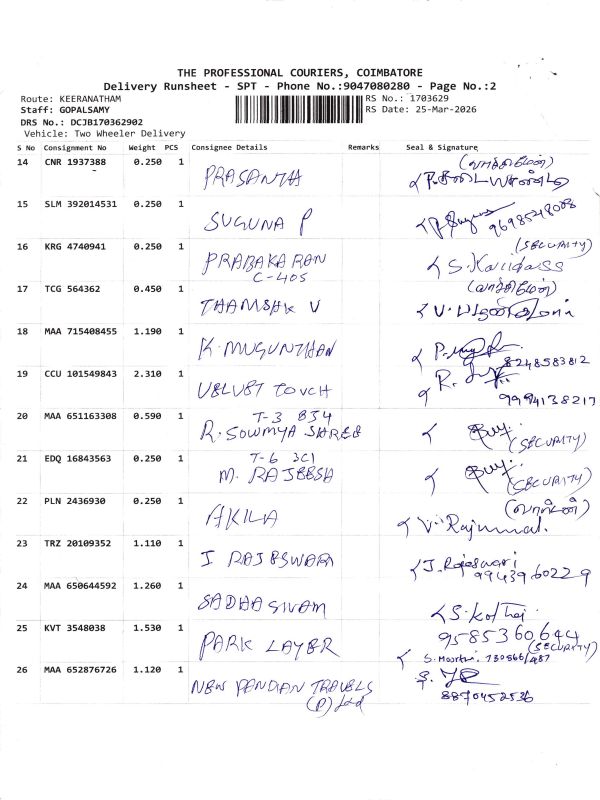 THE PROFESSIONAL COURIERS, COIMBATORE
Delivery Runsheet - SPT - Phone No.:9047080280 - Page No.:2
Route: KEERANATHAM
RS No.: 1703629
Staff: GOPALSAMY
RS Date: 25-Mar-2026
DRS No.: DCJB170362902
Vehicle: Two Wheeler Delivery
S No Consignment No Weight PCS Consignee Details Remarks Seal & Signature
14 CNR 1937388 0.250 1 PRASANTH
15 SLM 392014531 0.250 1 SUGUNA P 9698548008
(SECURITY)
16 KRG 4740941 0.250 1 PRABAKARAN S. Kalidass
C-405
17 TCG 564362 0.450 1 THAMSHK V
18 MAA 715408455 1.190 1 K. MUGUNTHAN
8248583812
19 CCU 101549843 2.310 1 VELVET TOUCH
9994138217
20 MAA 651163308 0.590 1 T-3 854
R. SOWMYA SHREE (SECURITY)
21 EDQ 16843563 0.250 1 T-6 3C1
M. RAJEESH (SECURITY)
22 PLN 2436930 0.250 1 AKILA V. Rajammal.
23 TRZ 20109352 1.110 1 J RAJESWARI J. Rajeswari
9943960229
24 MAA 650644592 1.260 1 SADHASIVAM S. Kothai
9585360644
25 KVT 3548038 1.530 1 PARK LAYER (SECURITY)
26 MAA 652876726 1.120 1 NEW PANDIAN TRAVELS
(P) Ltd 8870452536